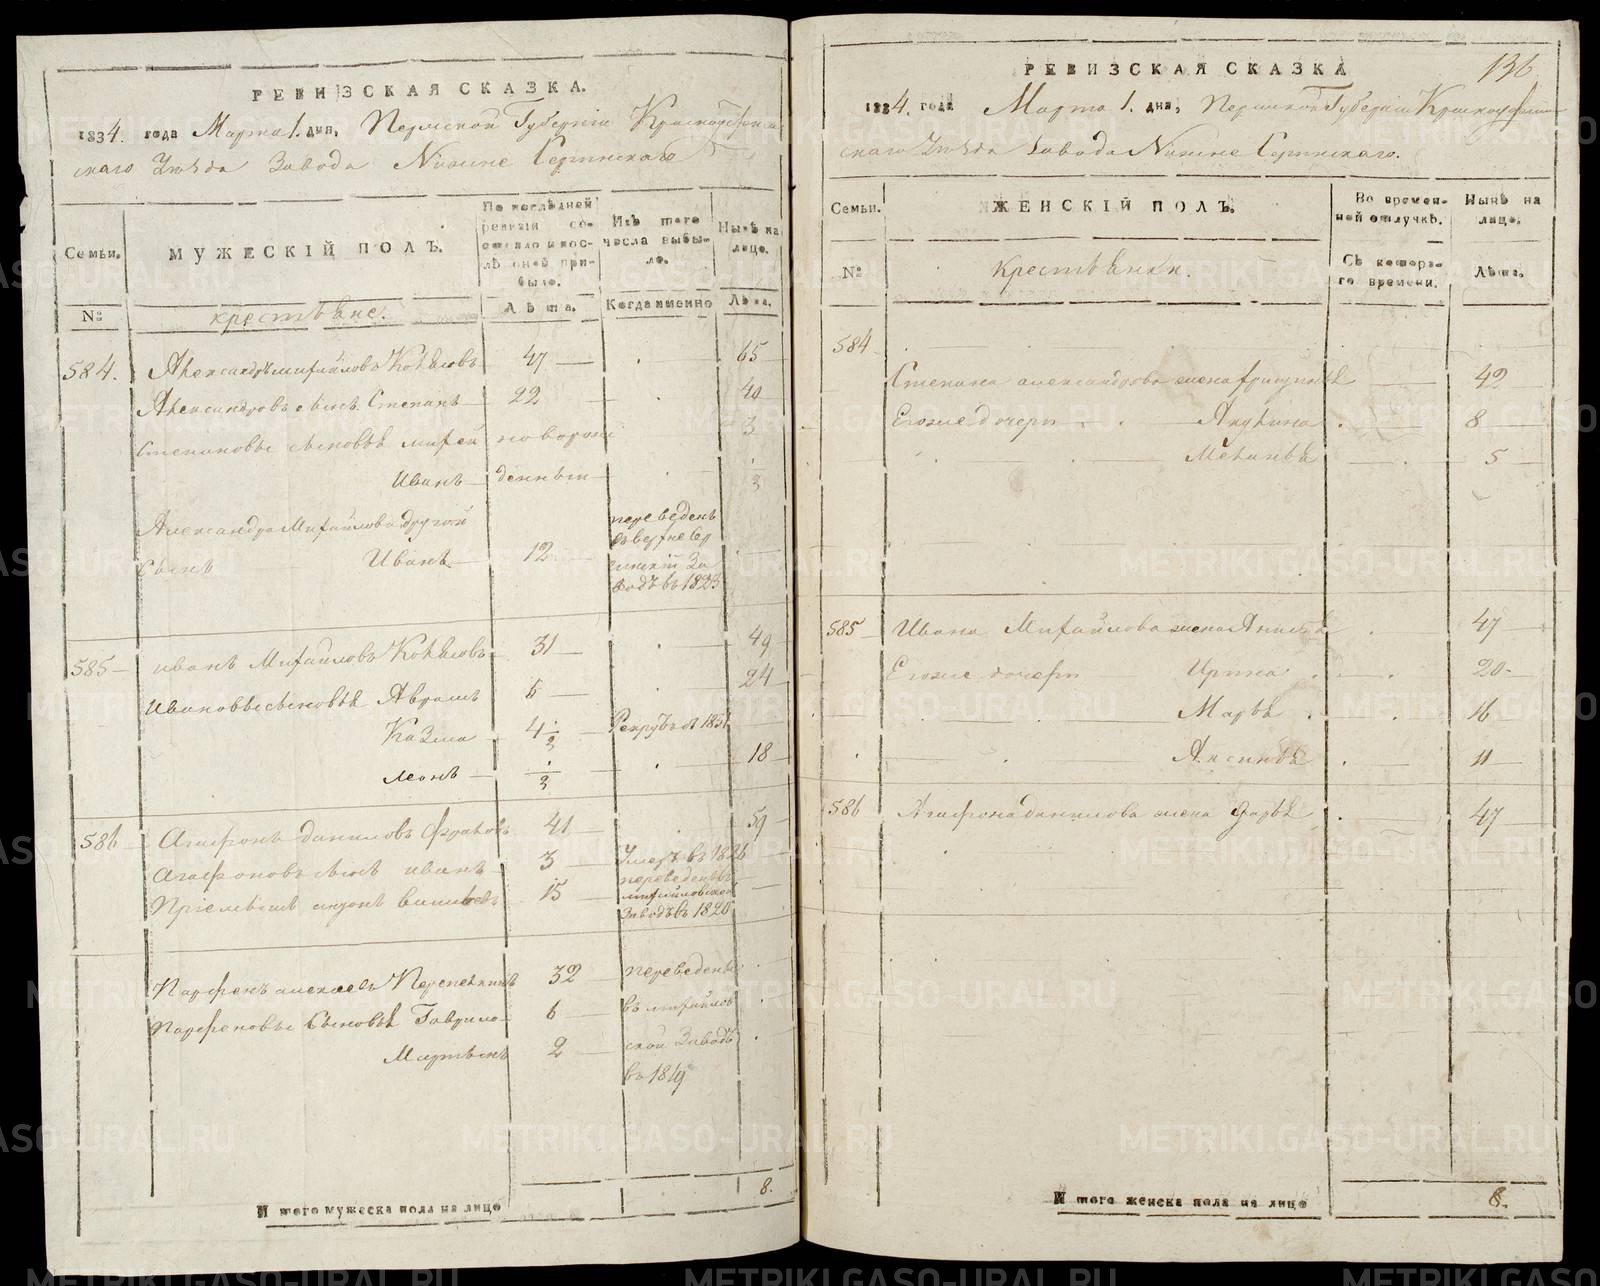 РЕВИЗСКАЯ СКАЗКА.
1834. года Марта 1. дня, Пермской Губернiи Красноуфим
скаго Уѣзда Завода Нижне Сергинскаго
Семьи.
МУЖЕСКIЙ ПОЛЪ.
По послѣдней ревизiи состояло и послѣ оной прибыло.
Изъ того числа выбыло.
Нынѣ на лицо.
№
крестьяне.
Лѣта.
Когда именно
Лѣта.
584. Александръ Михайловъ 47 65
Александровъ сынъ Степанъ 22 40
Степановы сыновья новорож 3
Иванъ денныя 3
Александра Михайлова другой переведенъ
сынъ Иванъ 12 въ верхне Сер
гинскiй За
водъ въ 1823
585 Иванъ Михайловъ 31 49
Ивановы сыновья Аврамъ 6 24
Козма 4 1/2 Рекрутъ въ 1831
Леонъ 1/2 18
586 Агафонъ Даниловъ 41 59
Агафоновъ сынъ Иванъ 3 Умеръ въ 1826
Прiемышъ 15 переведенъ въ
михайловской
Заводъ въ 1820
Парфенъ Алексеевъ 32 переведены
Парфеновы сыновья Гаврило 6 въ михайлов
Мартынъ 2 ской Заводъ
въ 1819
И того мужеска пола на лицо 8.
РЕВИЗСКАЯ СКАЗКА
136
1834. года Марта 1. дня, Пермской Губернiи Красноуфим
скаго Уѣзда Завода Нижне Сергинскаго.
Семьи.
ЖЕНСКIЙ ПОЛЪ.
Во временной отлучкѣ.
Нынѣ на лицо.
№
крестьянки.
Съ котораго времени.
Лѣта.
584
Степана Александрова жена 42
Егоже дочери 8
Меланья 5
585 Ивана Михайлова жена Анисья 47
Егоже дочери Ирина 20
Марья 16
Аксинья 11
586 Агафона Данилова жена Дарья 47
И того женска пола на лицо 8.
METRIKI.GASO-URAL.RU